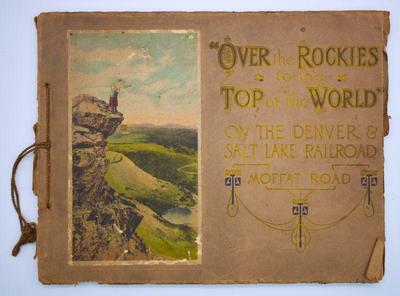 "OVER the ROCKIES
to the
TOP of the WORLD"
ON THE DENVER &
SALT LAKE RAILROAD
MOFFAT ROAD